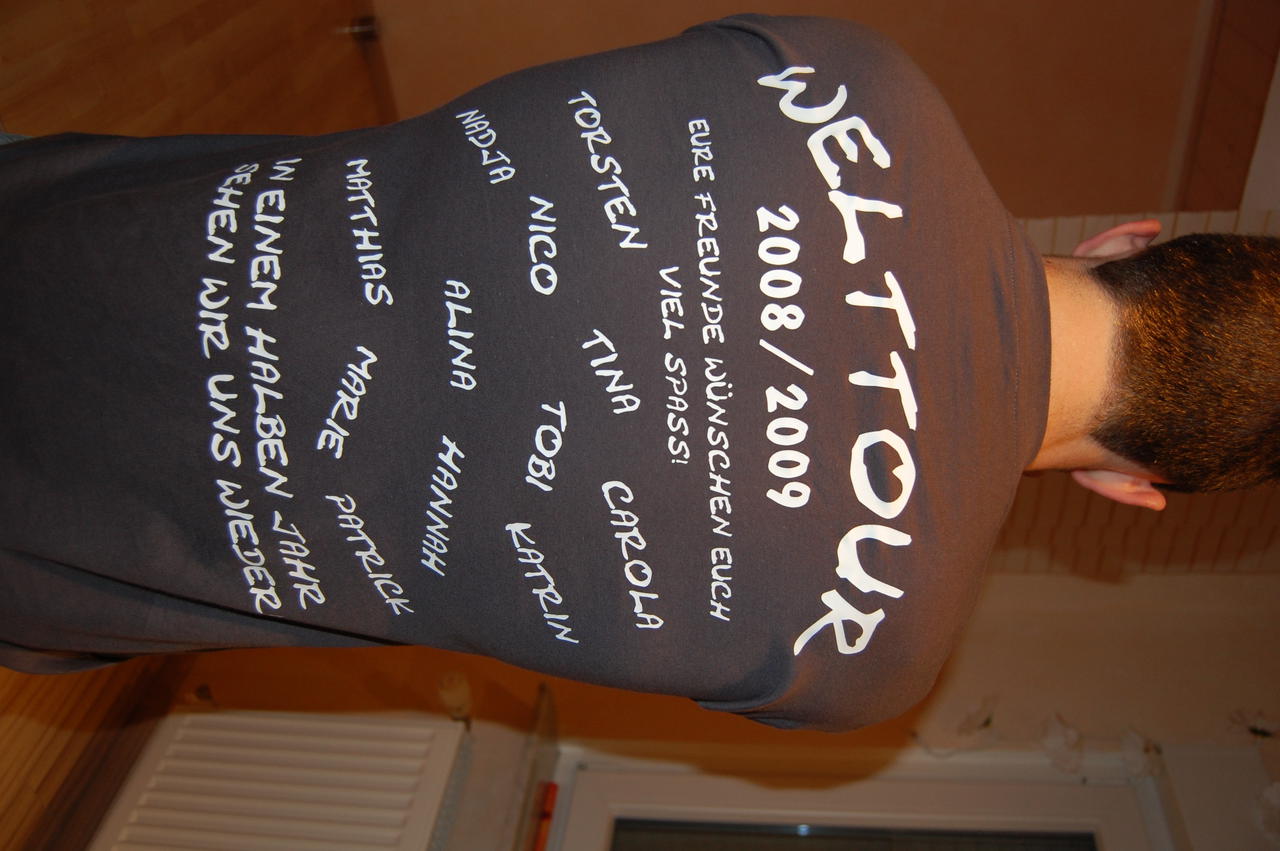 WELTTOUR
2008/2009
EURE FREUNDE WÜNSCHEN EUCH
VIEL SPASS!
TORSTEN TINA CAROLA
NICO TOBI KATRIN
NADJA ALINA HANNAH
MATTHIAS MARIE PATRICK
IN EINEM HALBEN JAHR
SEHEN WIR UNS WIEDER